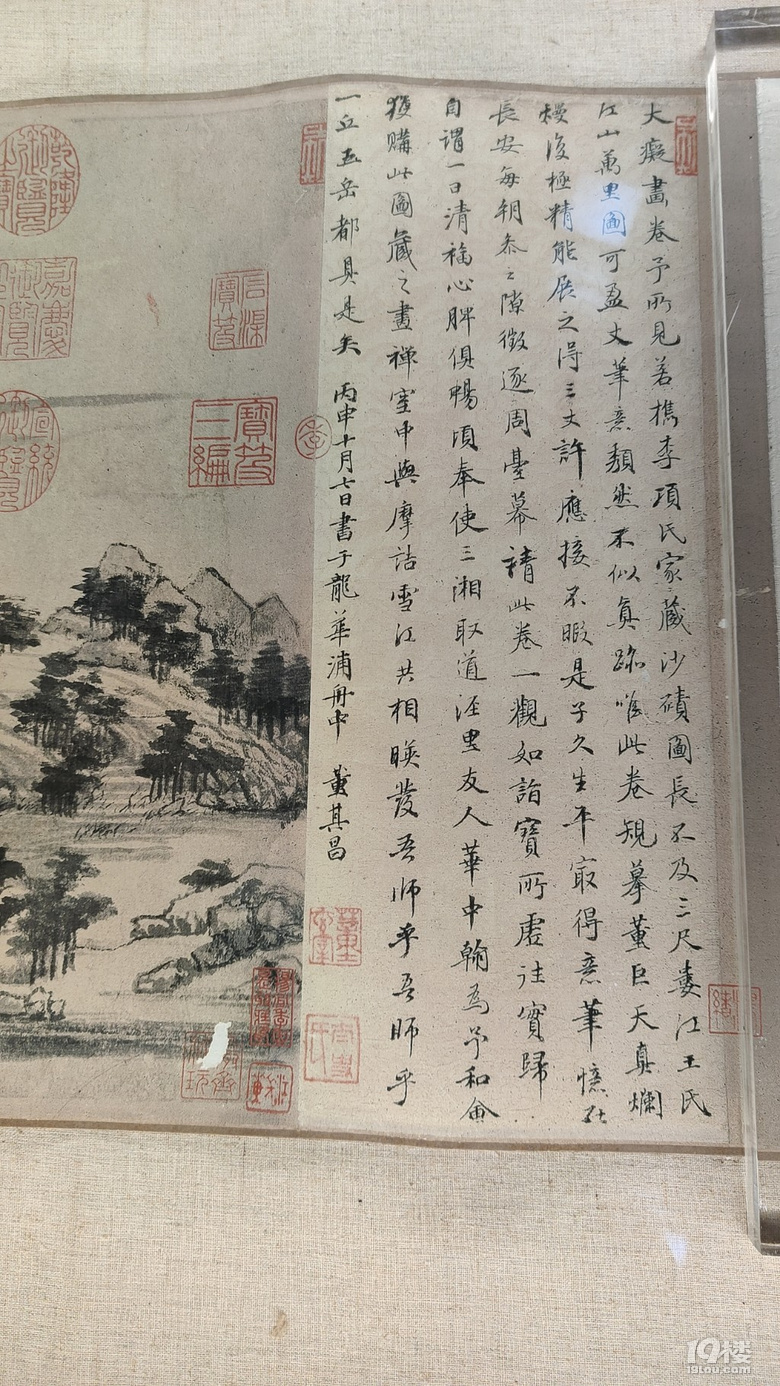 大癡畫卷予所見若檇李項氏家藏沙磧圖長不及三尺婁江王氏
江山萬里圖可盈丈筆意頹然不似真跡唯此卷規摹董巨天真爛
熳復極精能展之得三丈許應接不暇是子久生平最得意筆憶在
長安每朝參之隙徵逐周臺幕請此卷一觀如詣寶所虛往實歸
自謂一日清福心脾俱暢頃奉使三湘取道涇里友人華中翰為予和會
獲購此圖藏之畫禪室中與摩詰雪江共相暎發吾師乎吾師乎
一丘五岳都具是矣 丙申十月七日書于龍華浦舟中 董其昌
乾隆御覽之寶
嘉慶御覽
宣統御覽
石渠寶笈
寶笈三編
19楼
19lou.com